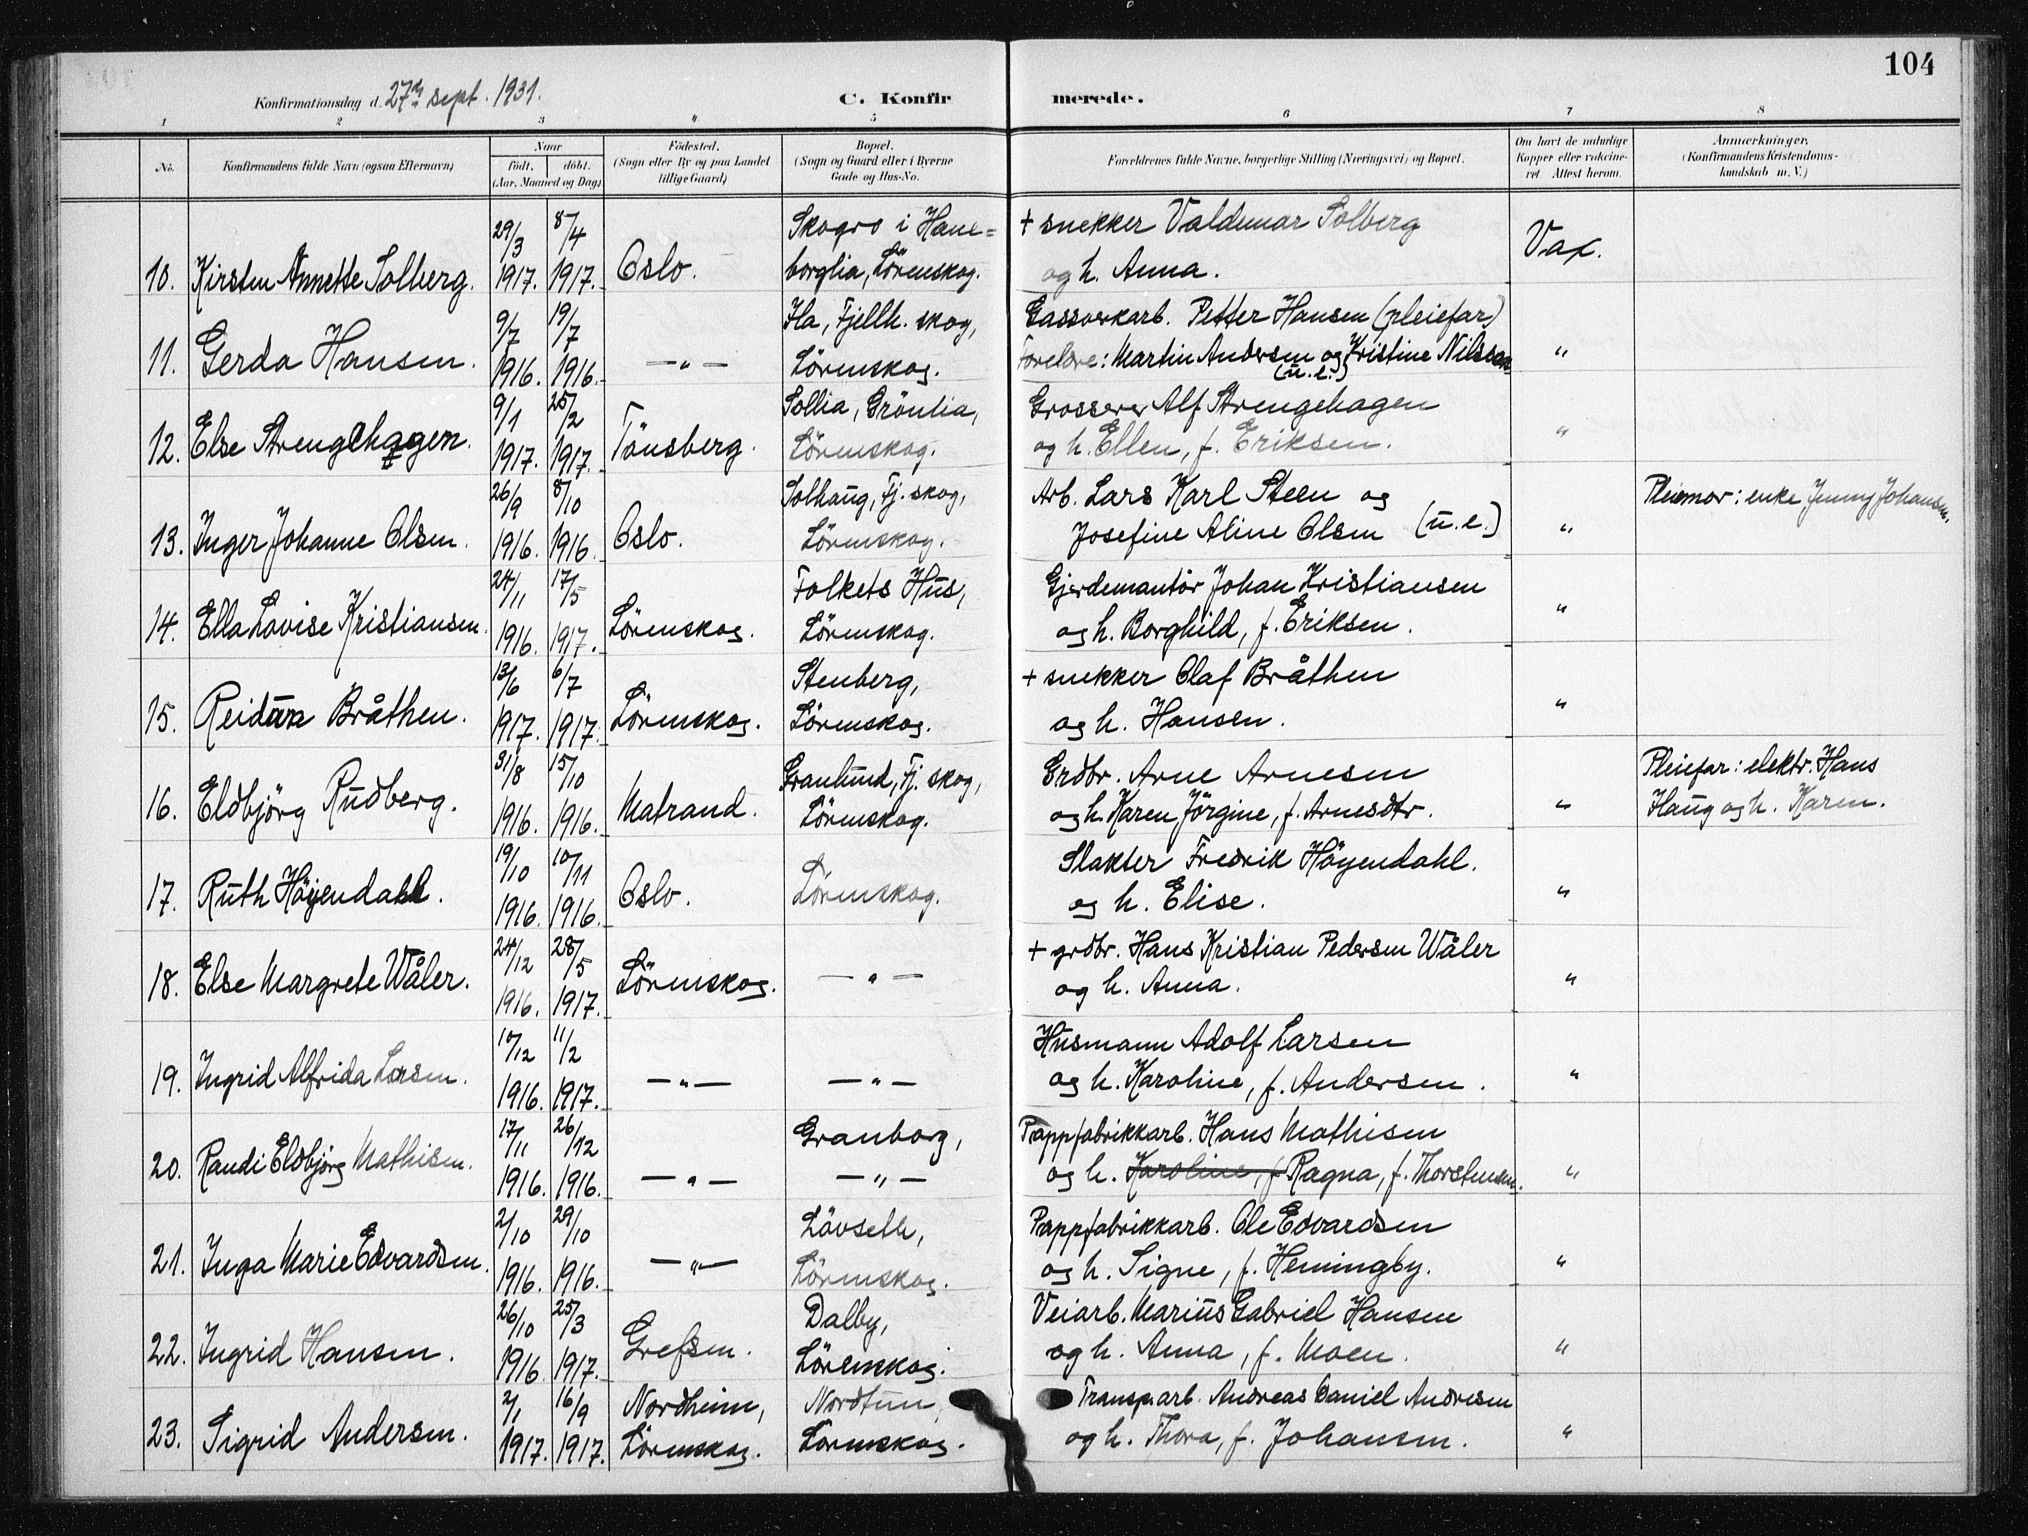 104
Konfirmationsdag d. 27de sept. 1931.
C. Konfirmerede.
1 2 3 " 5 6 7 8
No. Konfirmandens fulde Navn (ogsaa Efternavn) Naar født. døbt. (Aar, Maaned og Dag) Fødested. (Sogn eller By og paa Landet tillige Gaard) Bopæl. (Sogn og Gaard eller i Byerne Gade og Hus-No. Forældrenes fulde Navne, borgerlige Stilling (Næringsvei) og Bopæl. Om havt de naturlige Kopper eller vakcineret Attest herom. Anmærkninger. (Konfirmandens Kristendomskundskab m. V.)
29/3 8/4 Skogro i Hane= + snekker Valdemar Solberg
10. Kirsten Annette Solberg. 1917. 1917. Oslo. borglia, Lörenskog. og h. Anna. Vax.
9/7 19/7 Ila, Fjellh. skog, Gassverkarb. Petter Hansen (pleiefar)
11. Gerda Hansen. 1916. 1916. —„— Lörenskog. Foreldre: Martin Andersen og Kristine Nilssen (u.e.) "
9/1 25/2 Sollia, Grönlia, Grosserer Alf Strengehagen
12. Else Strengehagen. 1917. 1917. Tönsberg. Lörenskog. og h. Ellen, f. Eriksen. "
26/9 8/10 Solhaug, Fj. skog, Arb. Lars Karl Steen og Pleiemor: enke Jenny Johansen.
13. Inger Johanne Olsen. 1916. 1916. Oslo. Lörenskog. Josefine Aline Olsen (u.e.) "
24/11 17/5 Folkets Hus, Gjerdemantör Johan Kristiansen
14. Ella Lovise Kristiansen. 1916. 1917. Lörenskog. Lörenskog. og h. Borghild, f. Eriksen. "
13/6 6/7 Stenberg, + snekker Olaf Bråthen
15. Reidun Bråthen. 1917. 1917. Lörenskog. Lörenskog. og h. Hansen. "
31/8 15/10 Granlund, Fj. skog, Grdbr. Arne Arnesen Pleiefar: elektr. Hans
16. Eldbjörg Rudberg. 1916. 1916. Matrand. Lörenskog. og h. Karen Jörgine, f. Arnesdtr. " Haug og h. Karen.
19/10 10/11 Slakter Fredrik Höyendahl.
17. Ruth Höyendahl. 1916. 1916. Oslo. Lörenskog. og h. Elise. "
24/12 28/5 + grdbr. Hans Kristian Pedersen Wåler
18. Else Margrete Wåler. 1916. 1917. Lörenskog. —„— og h. Anna. "
10/12 11/2 Husmann Adolf Larsen
19. Ingrid Alfrida Larsen. 1916. 1917. —„— —„— og h. Karoline, f. Andersen. "
17/11 26/12 Granborg, Pappfabrikkarb. Hans Mathisen
20. Randi Eldbjörg Mathisen. 1916. 1916. —„— —„— og h. Karoline, f Ragna, f. Thorstensen. "
2/10 29/10 Lövseth, Pappfabrikkarb. Ole Edvardsen
21. Inga Marie Edvardsen. 1916. 1916. —„— Lörenskog. og h. Signe, f. Hemingby. "
26/10 25/3 Dalby, Veiarb. Marius Gabriel Hansen
22. Ingrid Hansen. 1916. 1917. Grefsen. Lörenskog. og h. Anna, f. Moen. "
2/1 16/9 Nordheim, Nordtun, Transp.arb. Andreas Daniel Andresen
23. Sigrid Andersen. 1917. 1917. Lörenskog. Lörenskog. og h. Thora, f. Johansen. "